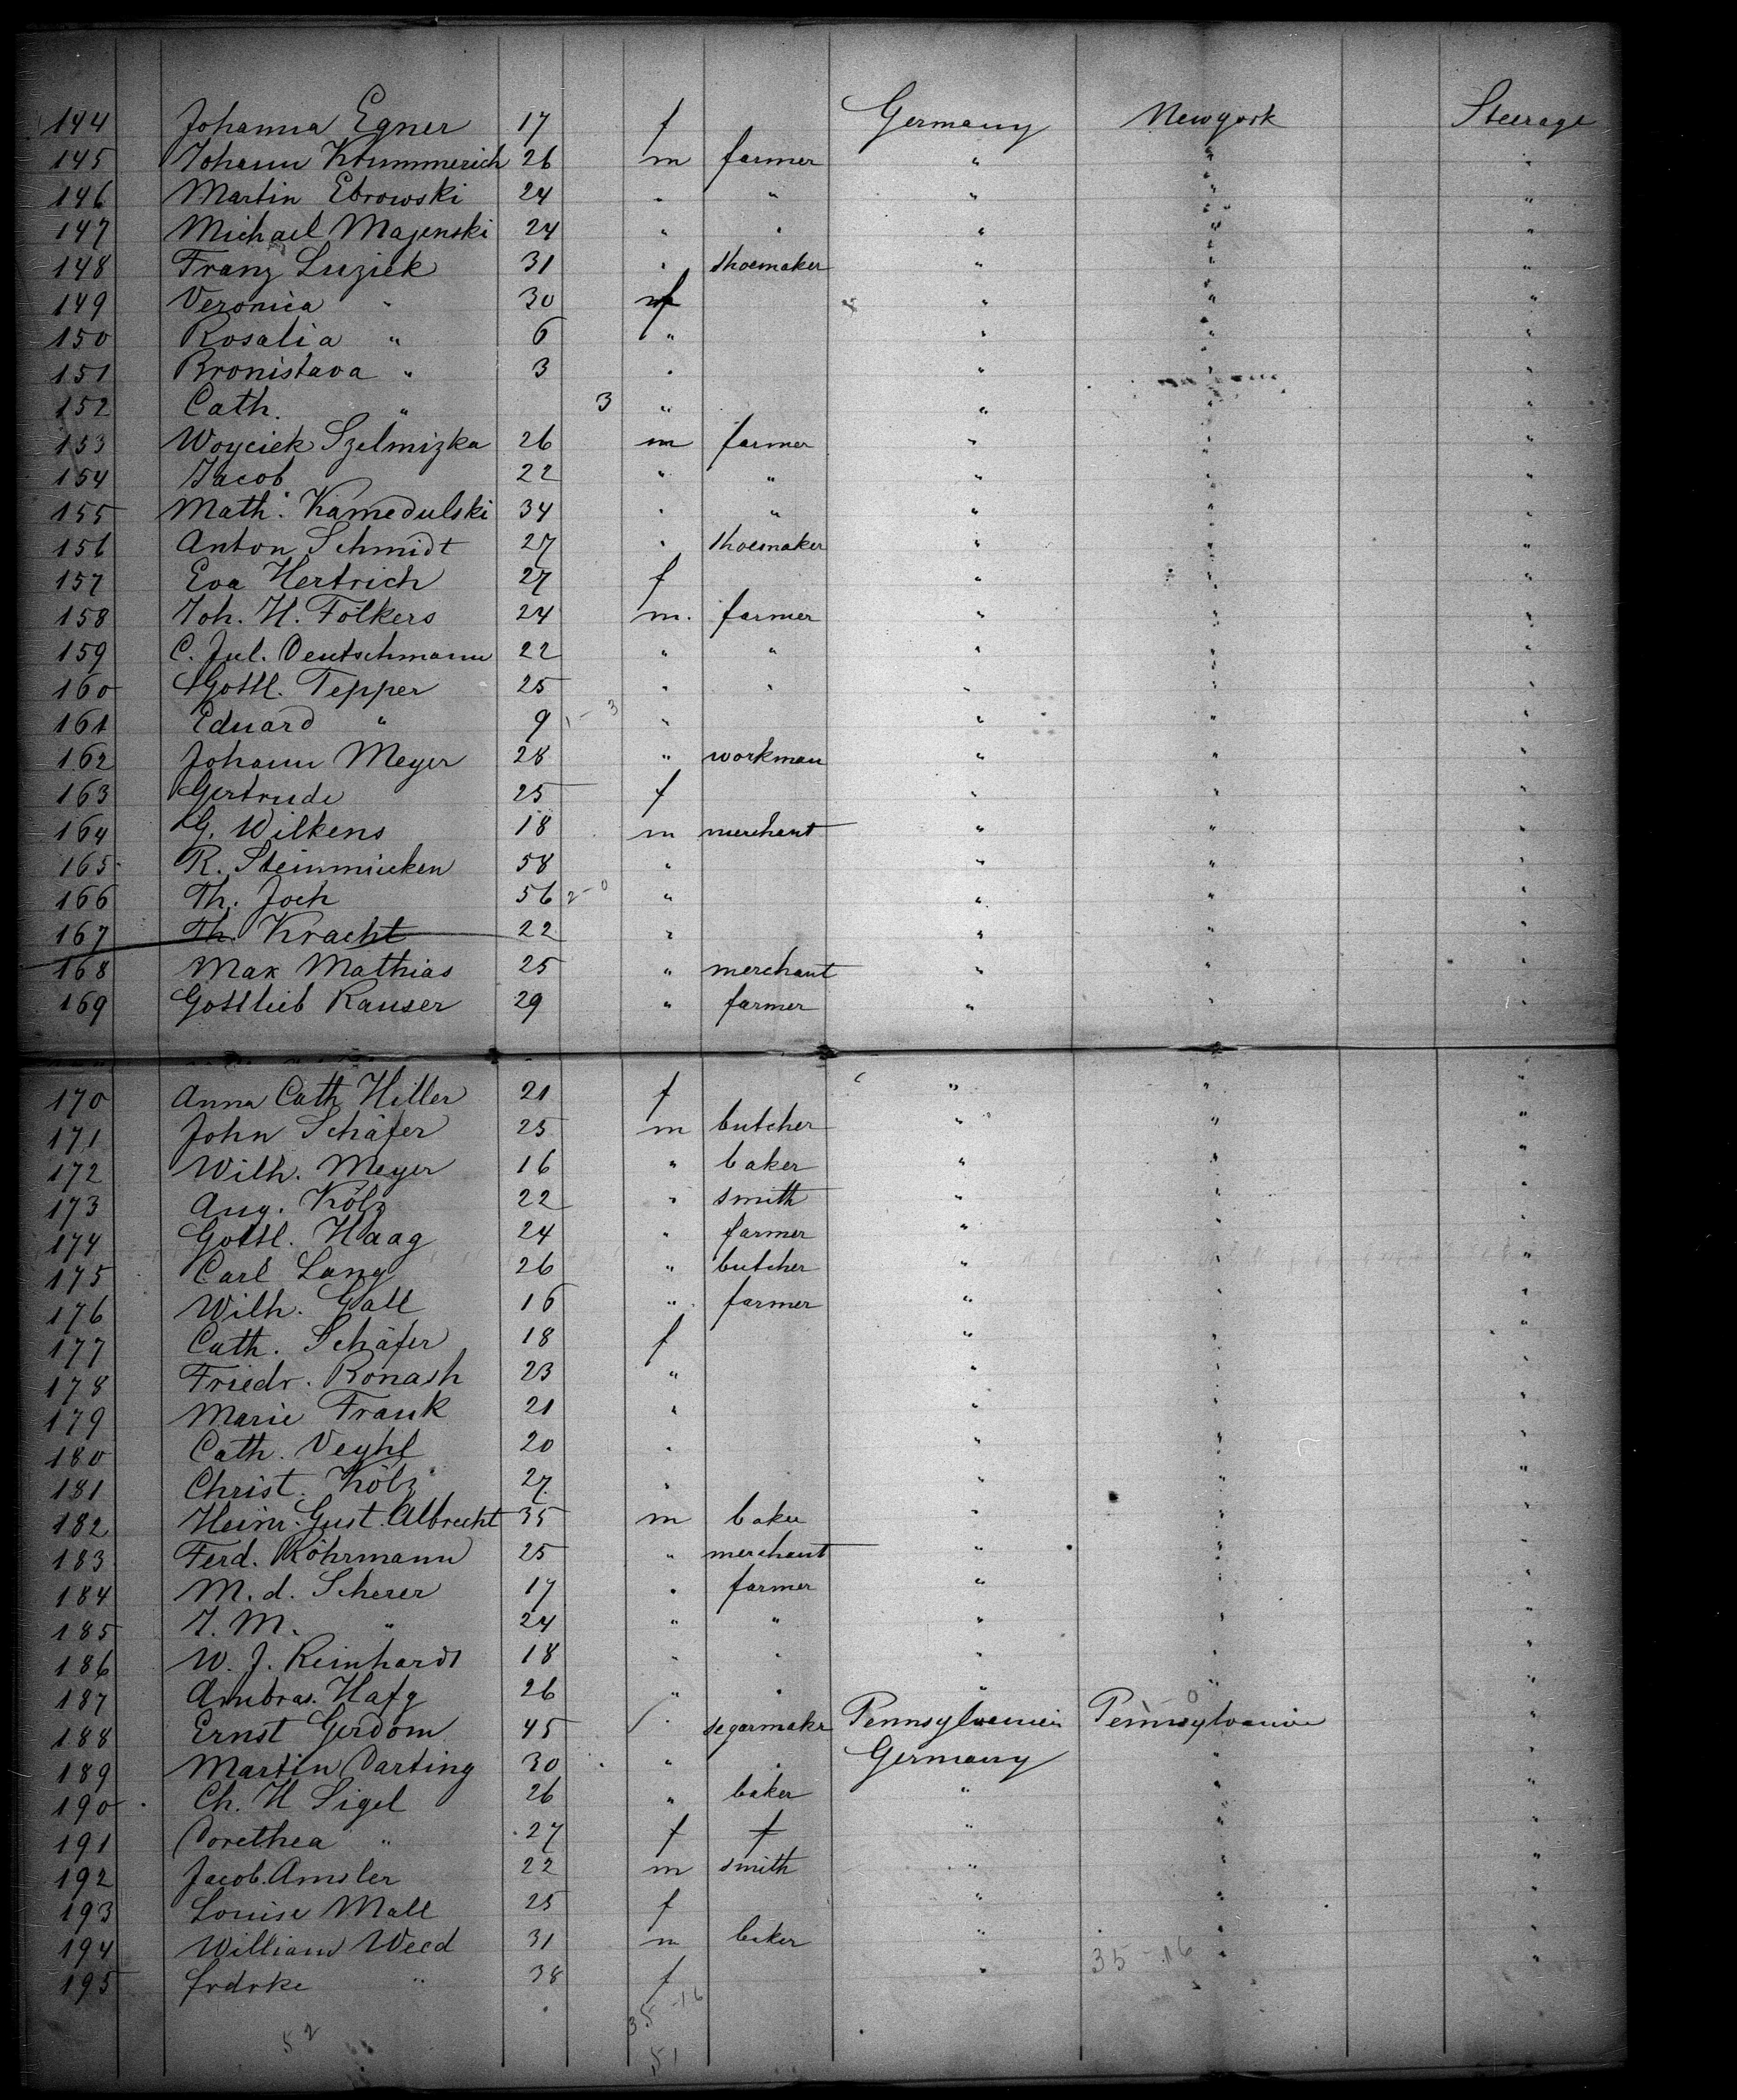 144 Johanna Egner 17 f Germany Newyork Steerage
145 Johann Krummerich 26 m farmer " " "
146 Martin Ebrowski 24 " " " " "
147 Michael Majenski 24 " " " " "
148 Franz Luziek 31 " shoemaker " " "
149 Veronica " 30 f " " "
150 Rosalia " 6 " " " "
151 Bronislava " 3 " " " "
152 Cath. " 3 " " " "
153 Woyciek Szelmizka 26 m farmer " " "
154 Jacob " 22 " " " " "
155 Math. Kamedulski 34 " " " " "
156 Anton Schmidt 27 " shoemaker " " "
157 Eva Hertrich 27 f " " "
158 Joh. H. Fölkers 24 m. farmer " " "
159 C. Jul. Deutschmann 22 " " " " "
160 Gottl. Tepper 25 " " " " "
161 Eduard " 9 1-3 " " " "
162 Johann Meyer 28 " workman " " "
163 Gertrude 25 f " " "
164 G. Wilkens 18 m merchant " " "
165 R. Steinmücken 58 " " " "
166 Th. Joch 56 2-0 " " " "
167 Th. Kracht 22 " " " "
168 Max Mathias 25 " merchant " " "
169 Gottlieb Kauser 29 " farmer " " "
170 Anna Cath Hiller 21 f " " "
171 John Schäfer 25 m butcher " " "
172 Wilh. Meyer 16 " baker " " "
173 Aug. Kölz 22 " smith " " "
174 Gottl. Haag 24 " farmer " " "
175 Carl Lang 26 " butcher " " "
176 Wilh. Gall 16 " farmer " " "
177 Cath. Schäfer 18 f " " "
178 Friedr. Ronash 23 " " " "
179 Marie Frank 21 " " " "
180 Cath. Veyhl 20 " " " "
181 Christ. Kölz 27 " " " "
182 Heinr. Gust. Albrecht 35 m baker " " "
183 Ferd. Röhrmann 25 " merchant " " "
184 M. d. Scherer 17 " farmer " " "
185 J. M. " 24 " " " " "
186 W. J. Reinhardt 18 " " " " "
187 Ambras. Hafg 26 " " " " "
188 Ernst Gerdom 45 " segarmakr Pennsylvanien Pennsylvanien "
189 Martin Darting 30 " " Germany " "
190 Ch. H Sigel 26 " baker " " "
191 Dorethea " 27 f f " " "
192 Jacob Amsler 22 m smith " " "
193 Louise Mall 25 f " " "
194 William Weed 31 m baker " " "
195 frdrke " 38 f " " "
35-16
35-16
52
51